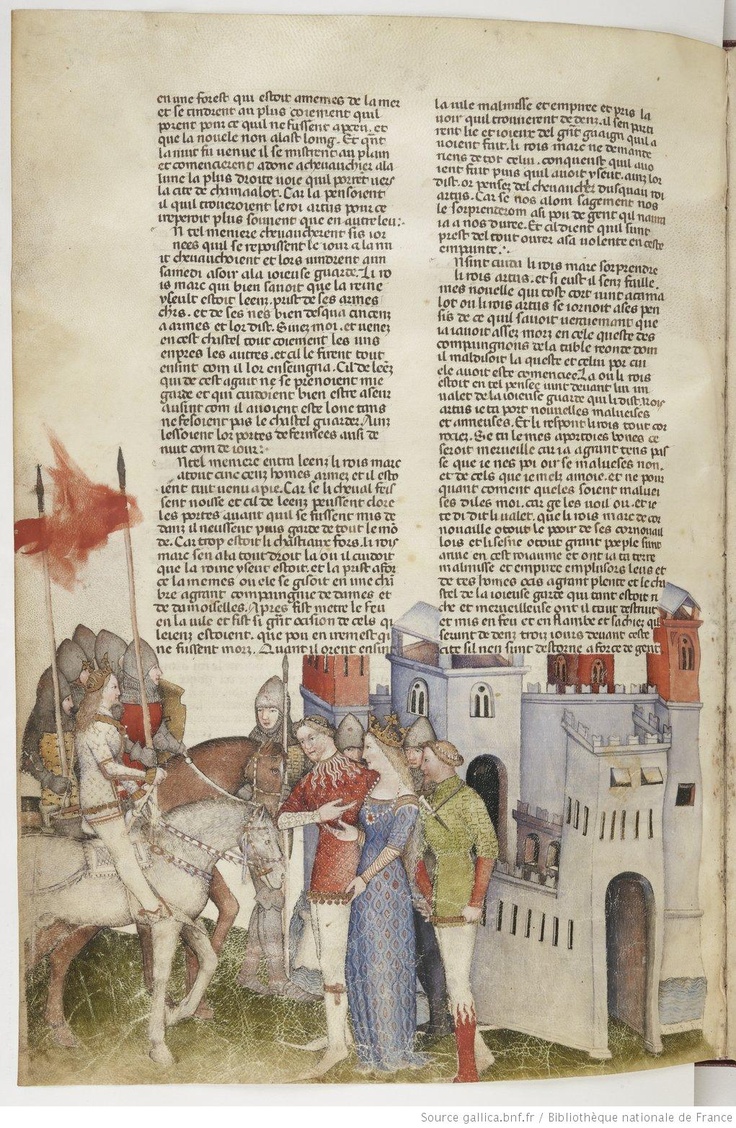 en une forest qui estoit ameines de la mer
et se tindrent au plus coiement quil
porent pour ce quil ne fussent apceu. et
que la nouele non alast loing. Et qnt
la nuit fu venue il se mistrent au plain
et comencierent adonc acheuauchier ala
lune la plus droite uoie quil porent uers
la cite de chamaalot. Car la pensoient
il quil troueroient le roi artus pour ce
repeiroit plus souuent que en autre leu:
N tel meniere cheuaucherent sis ior
nees quil se repoissent le iour a la nu
it cheuauchoient et lors uindrent aun
samedi asoir ala ioieuse guarde. Li ro
is marc qui bien sauoit que la reine
yseult estoit leenz. prist de ses armes
chrs. et de ses nes bien desqua cincenz
a armes et lor dist. Siuez moi. et uenez
en cest chastel tout coiement les uns
enpres les autres. et cil le firent tout
ensint com il lor enseingna. Cil de leez
qui de cest agait ne se prenoient mie
garde et qui cuidoient bien estre aseur
ausint com il auoient este lonc tans
ne fesoient pas le chastel guarder. Ainz
lessoient lor portes defermees ausi de
nuit com de iour:
Ntel meniere entra leenz li rois marc
atout cinc cenz homes armez et il esto
ient tuit uenu apie. Car se li cheual feis
sent noisse et cil de leenz peussent clore
les portes auant quil se fussent mis de
denz il neussent puis garde de tout le mo
de. Car trop estoit li chastiaus fors. li rois
marc sen ala tout droit la ou il cuidoit
que la roine yseut estoit. et la prist afor
ce la meimes ou ele se gisoit en une cha
bre agrant compaingnie de dames et
de damoiselles. Apres fist metre le feu
en la uile et fist si gnt ocision de cels qi
leienz estoient. que pou en iremest qi
ne fussent mors. Quant il orent ensint
la uile malmisse et emprise et pris la
uoir quil trouuerent dedenz. il sen parti
rent lie et ioieux del gnt guaign quil a
uoient fait. li rois marc ne demande
riens de tot celui. conquest quil auo
ient fait puis quil auoit yseut. ainz lor
dist. or pensez del cheuaucher dusquau roi
artus. Car se nos alom sagement nos
le sorprenderom asi pou de gent quil naura
ia a nos duree. Et cil dient quil sunt
prest del tout ourer asa uolente en ceste
enprinte.
Nsint cuida li rois marc sorprendre
li rois artus. et si eust il senz faille.
mes nouelle qui tost cort uint acama
lot ou li rois artus se iornoit ases pen
sis de ce quil sauoit ueraiement que
ia iauoit assez mors en cele queste des
compaingnons de la table reonde dom
il maldisoit la queste et celui por cui
ele auoit este comenciee. La ou li rois
estoit en tel pensee uint deuant lui un
ualet de la ioieuse guarde qui li dist. Rois
artus ie ta port nouelles malueises
et anieuses. Et li respont li rois tout cor
rociez. Se tu le mes aportoies bones ce
seroit merueille car ia agrant tens pas
se que ie nes poi oir se malueses non.
et de cels que ie meh amoie. et ne por
quant coment queles soient maluei
ses di les moi. car ge les uoil oir. et ie
te di dit li uallet. que li rois marc de cor
nouaille o tout le pooir de ses cornouail
lois et li sesne o tout grant pueple sunt
uenu en cest roiaume et ont ia ta terre
malmisse et emprise emplusors leus et
de tes homes ocis agrant plente et le cha
stel de la ioieuse guarde qui tant estoit ri
che et merueilleuse ont il tout destruit
et mis en feu et en flambe et sachiez quil
seront dedenz trois iours deuant ceste
cite sil nen sunt destorne a force de gent
Source gallica.bnf.fr / Bibliothèque nationale de France